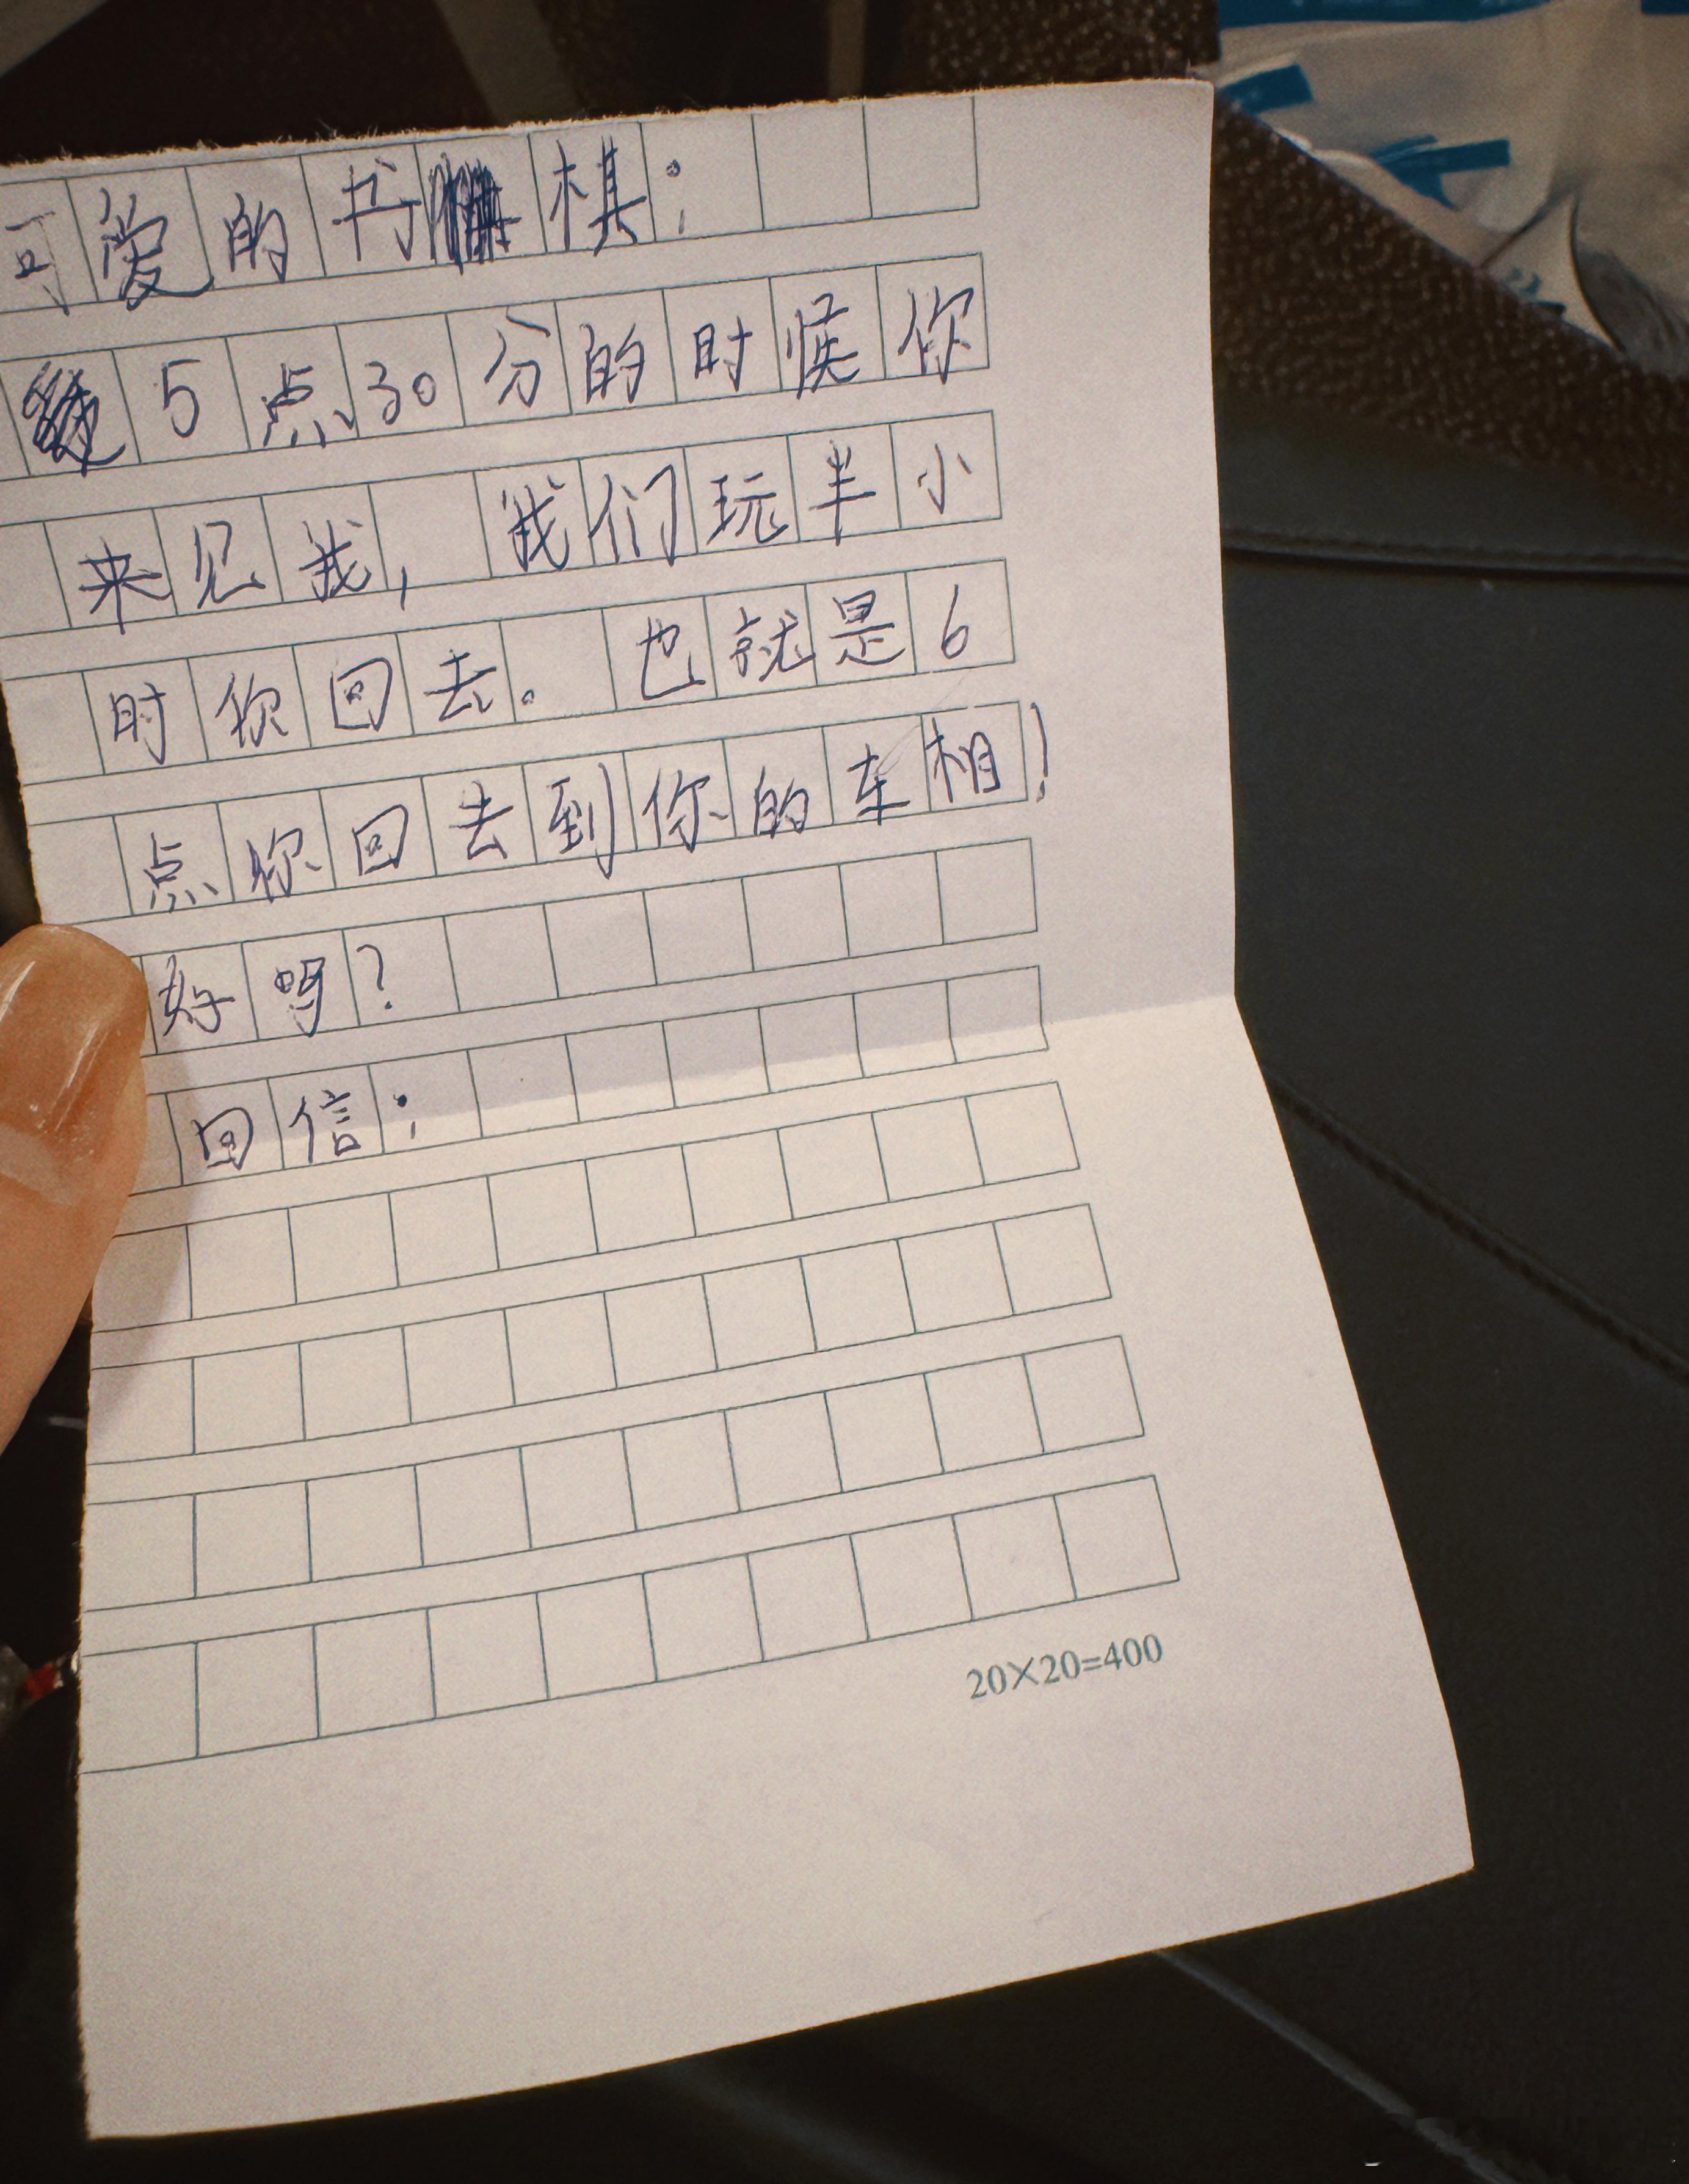 可爱的书棋：
5点30分的时候你
来见我，我们玩半小
时你回去。也就是6
点你回去到你的车相！
好吗？
回信：
20×20=400